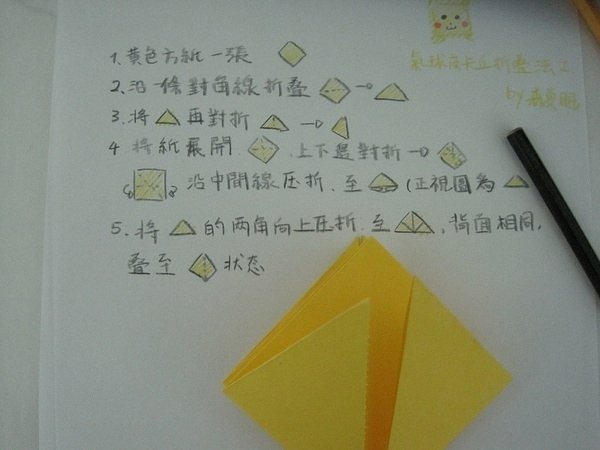 氣球皮卡丘折疊法1
by
1.黃色方紙一張
2.沿一條對角線折疊
3.將再對折
4 將紙展開.上下邊對折
沿中間線压折.至(正視圖為
5.將的两角向上压折.至,背面相同.
疊至状态